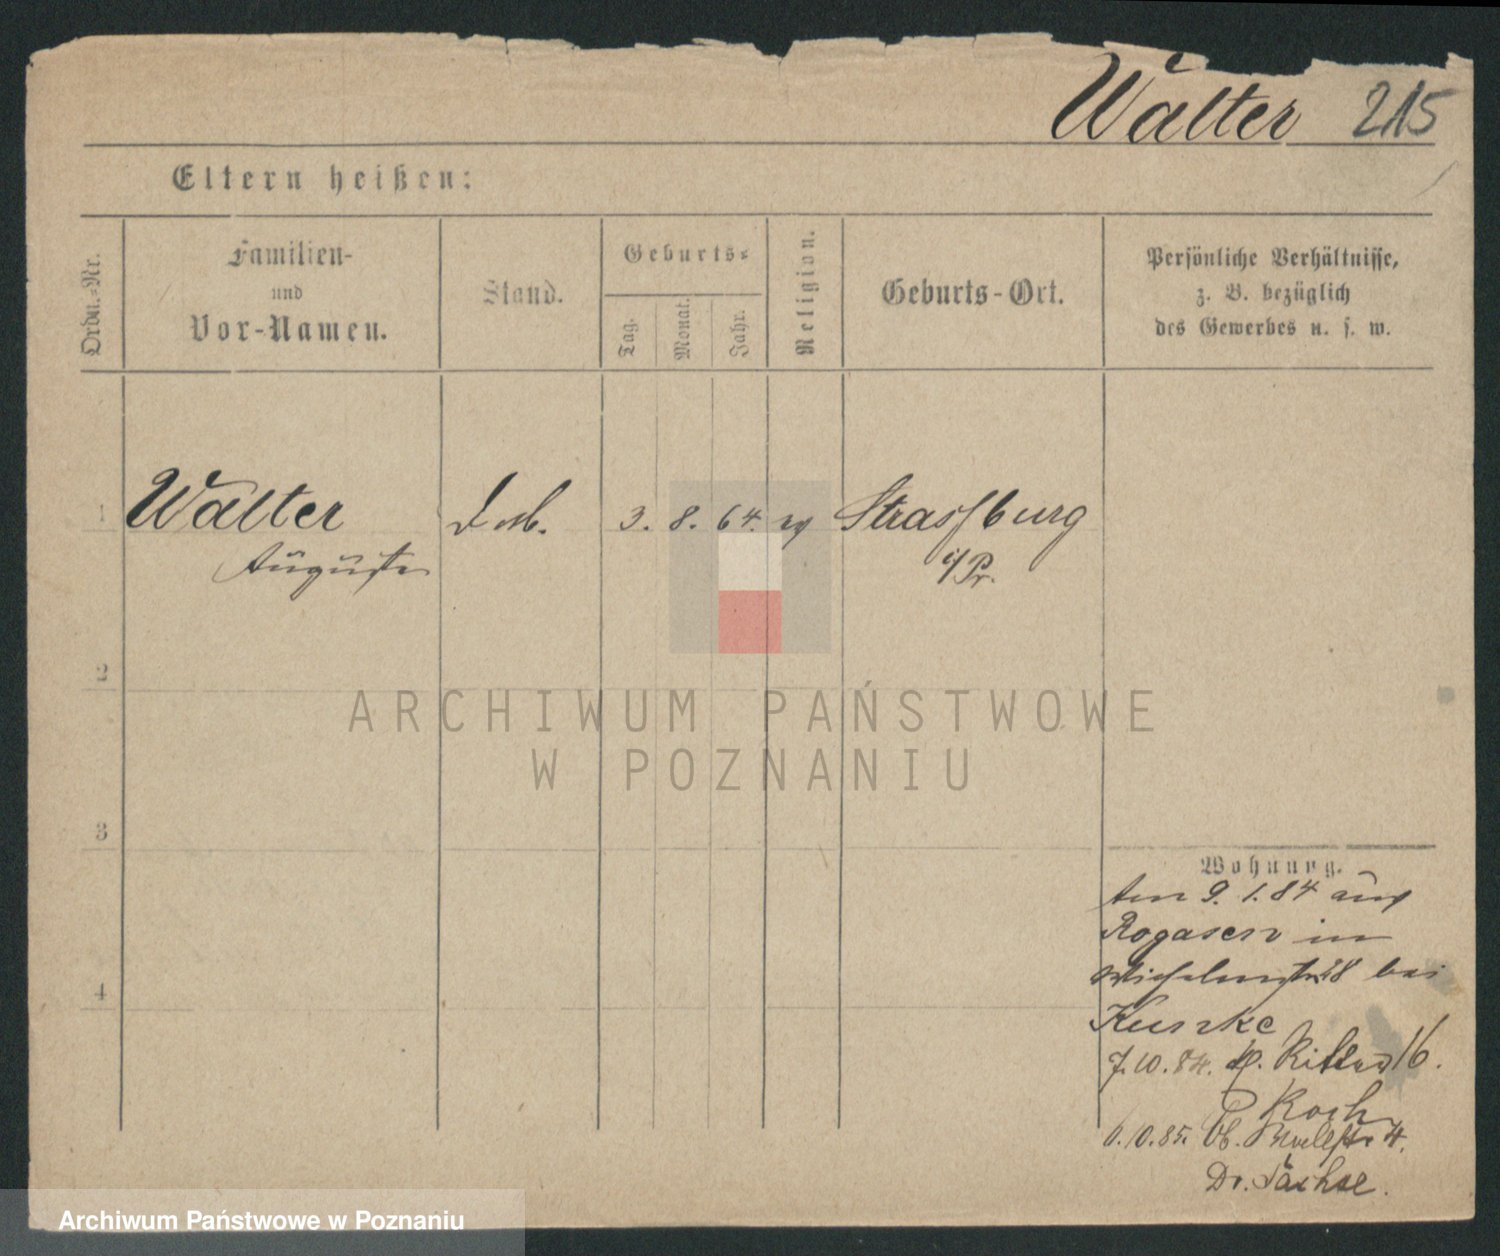 Walter 215
Eltern heißen:
Ordn.-Nr.
Familien-
und
Vor-Namen.
Stand.
Geburts-
Tag.
Monat.
Jahr.
Religion.
Geburts-Ort.
Persönliche Verhältnisse,
z. B. bezüglich
des Gewerbes u. s. w.
1 Walter 3. 8. 64. Strassburg
Auguste i/Pr.
2
ARCHIWUM PAŃSTWOWE
W POZNANIU
3
Wohnung.
Am 9. 1. 84 aus
Rogasen in
bei
Kunke
7.10.84. Ritter 16.
Koch
6.10.85. 4.
Dr. Sachse.
4
Archiwum Państwowe w Poznaniu